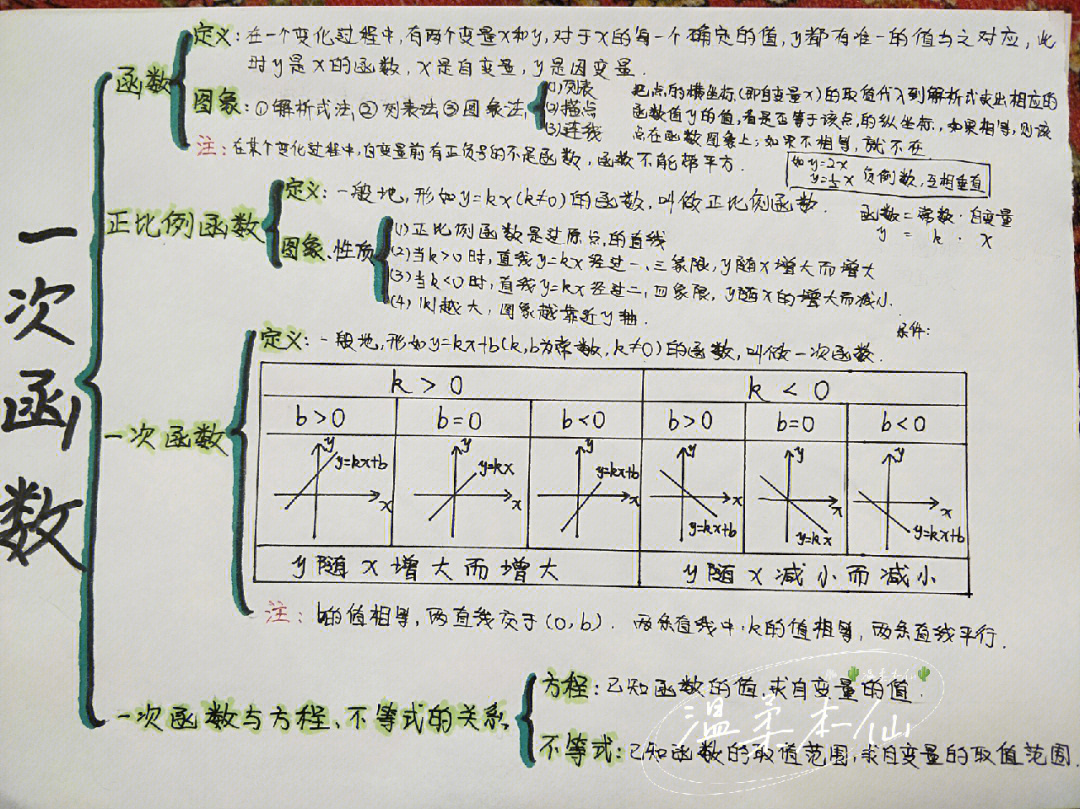 一次函数
函数
定义：在一个变化过程中，有两个变量x和y，对于x的每一个确定的值，y都有唯一的值与之对应，此
时y是x的函数，x是自变量，y是因变量．
图象：①解析式法，②列表法③图象法
(1)列表
(2)描点
(3)连线
把点的横坐标（即自变量x）的取值代入到解析式求出相应的
函数值y的值，看是否等于该点的纵坐标，如果相等，则该
点在函数图象上；如果不相等，就不在．
注：在某个变化过程中，自变量前有正负号的不是函数，函数不能带平方．
如y=2x
y=-½x 负倒数，互相垂直
正比例函数
定义：一般地，形如y=kx(k≠0)的函数，叫做正比例函数．
函数=常数·自变量
y = k · x
图象、性质
(1)正比例函数是过原点的直线
(2)当k>0时，直线y=kx经过一、三象限，y随x增大而增大
(3)当k<0时，直线y=kx经过二，四象限，y随x的增大而减小．
(4)|k|越大，图象越靠近y轴．
条件：
一次函数
定义：一般地，形如y=kx+b(k,b为常数，k≠0)的函数，叫做一次函数．
k>0 k<0
b>0 b=0 b<0 b>0 b=0 b<0
y y=kx+b x
y y=kx x
y y=kx+b x
y x y=kx+b
y x y=kx
y x y=kx+b
y随x增大而增大 y随x减小而减小
注：b的值相等，两直线交于(0,b)．两条直线中，k的值相等，两条直线平行．
一次函数与方程、不等式的关系
方程：已知函数的值，求自变量的值．
不等式：已知函数的取值范围，求自变量的取值范围．
温柔本仙